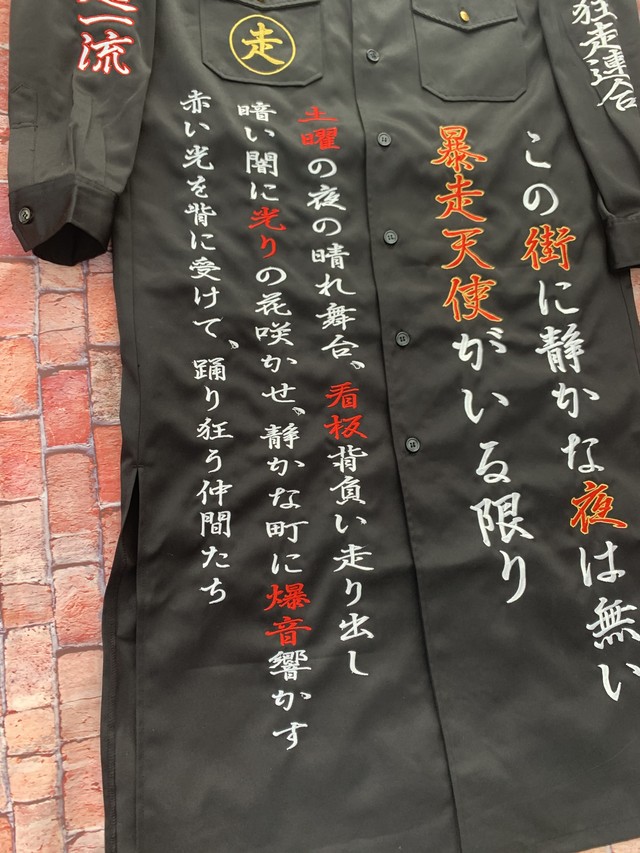 狂走連合
この街に静かな夜は無い
暴走天使がいる限り
土曜の夜の晴れ舞台、看板背負い走り出し
暗い闇に光りの花咲かせ、静かな町に爆音響かす
赤い光を背に受けて、踊り狂う仲間たち
走
一流